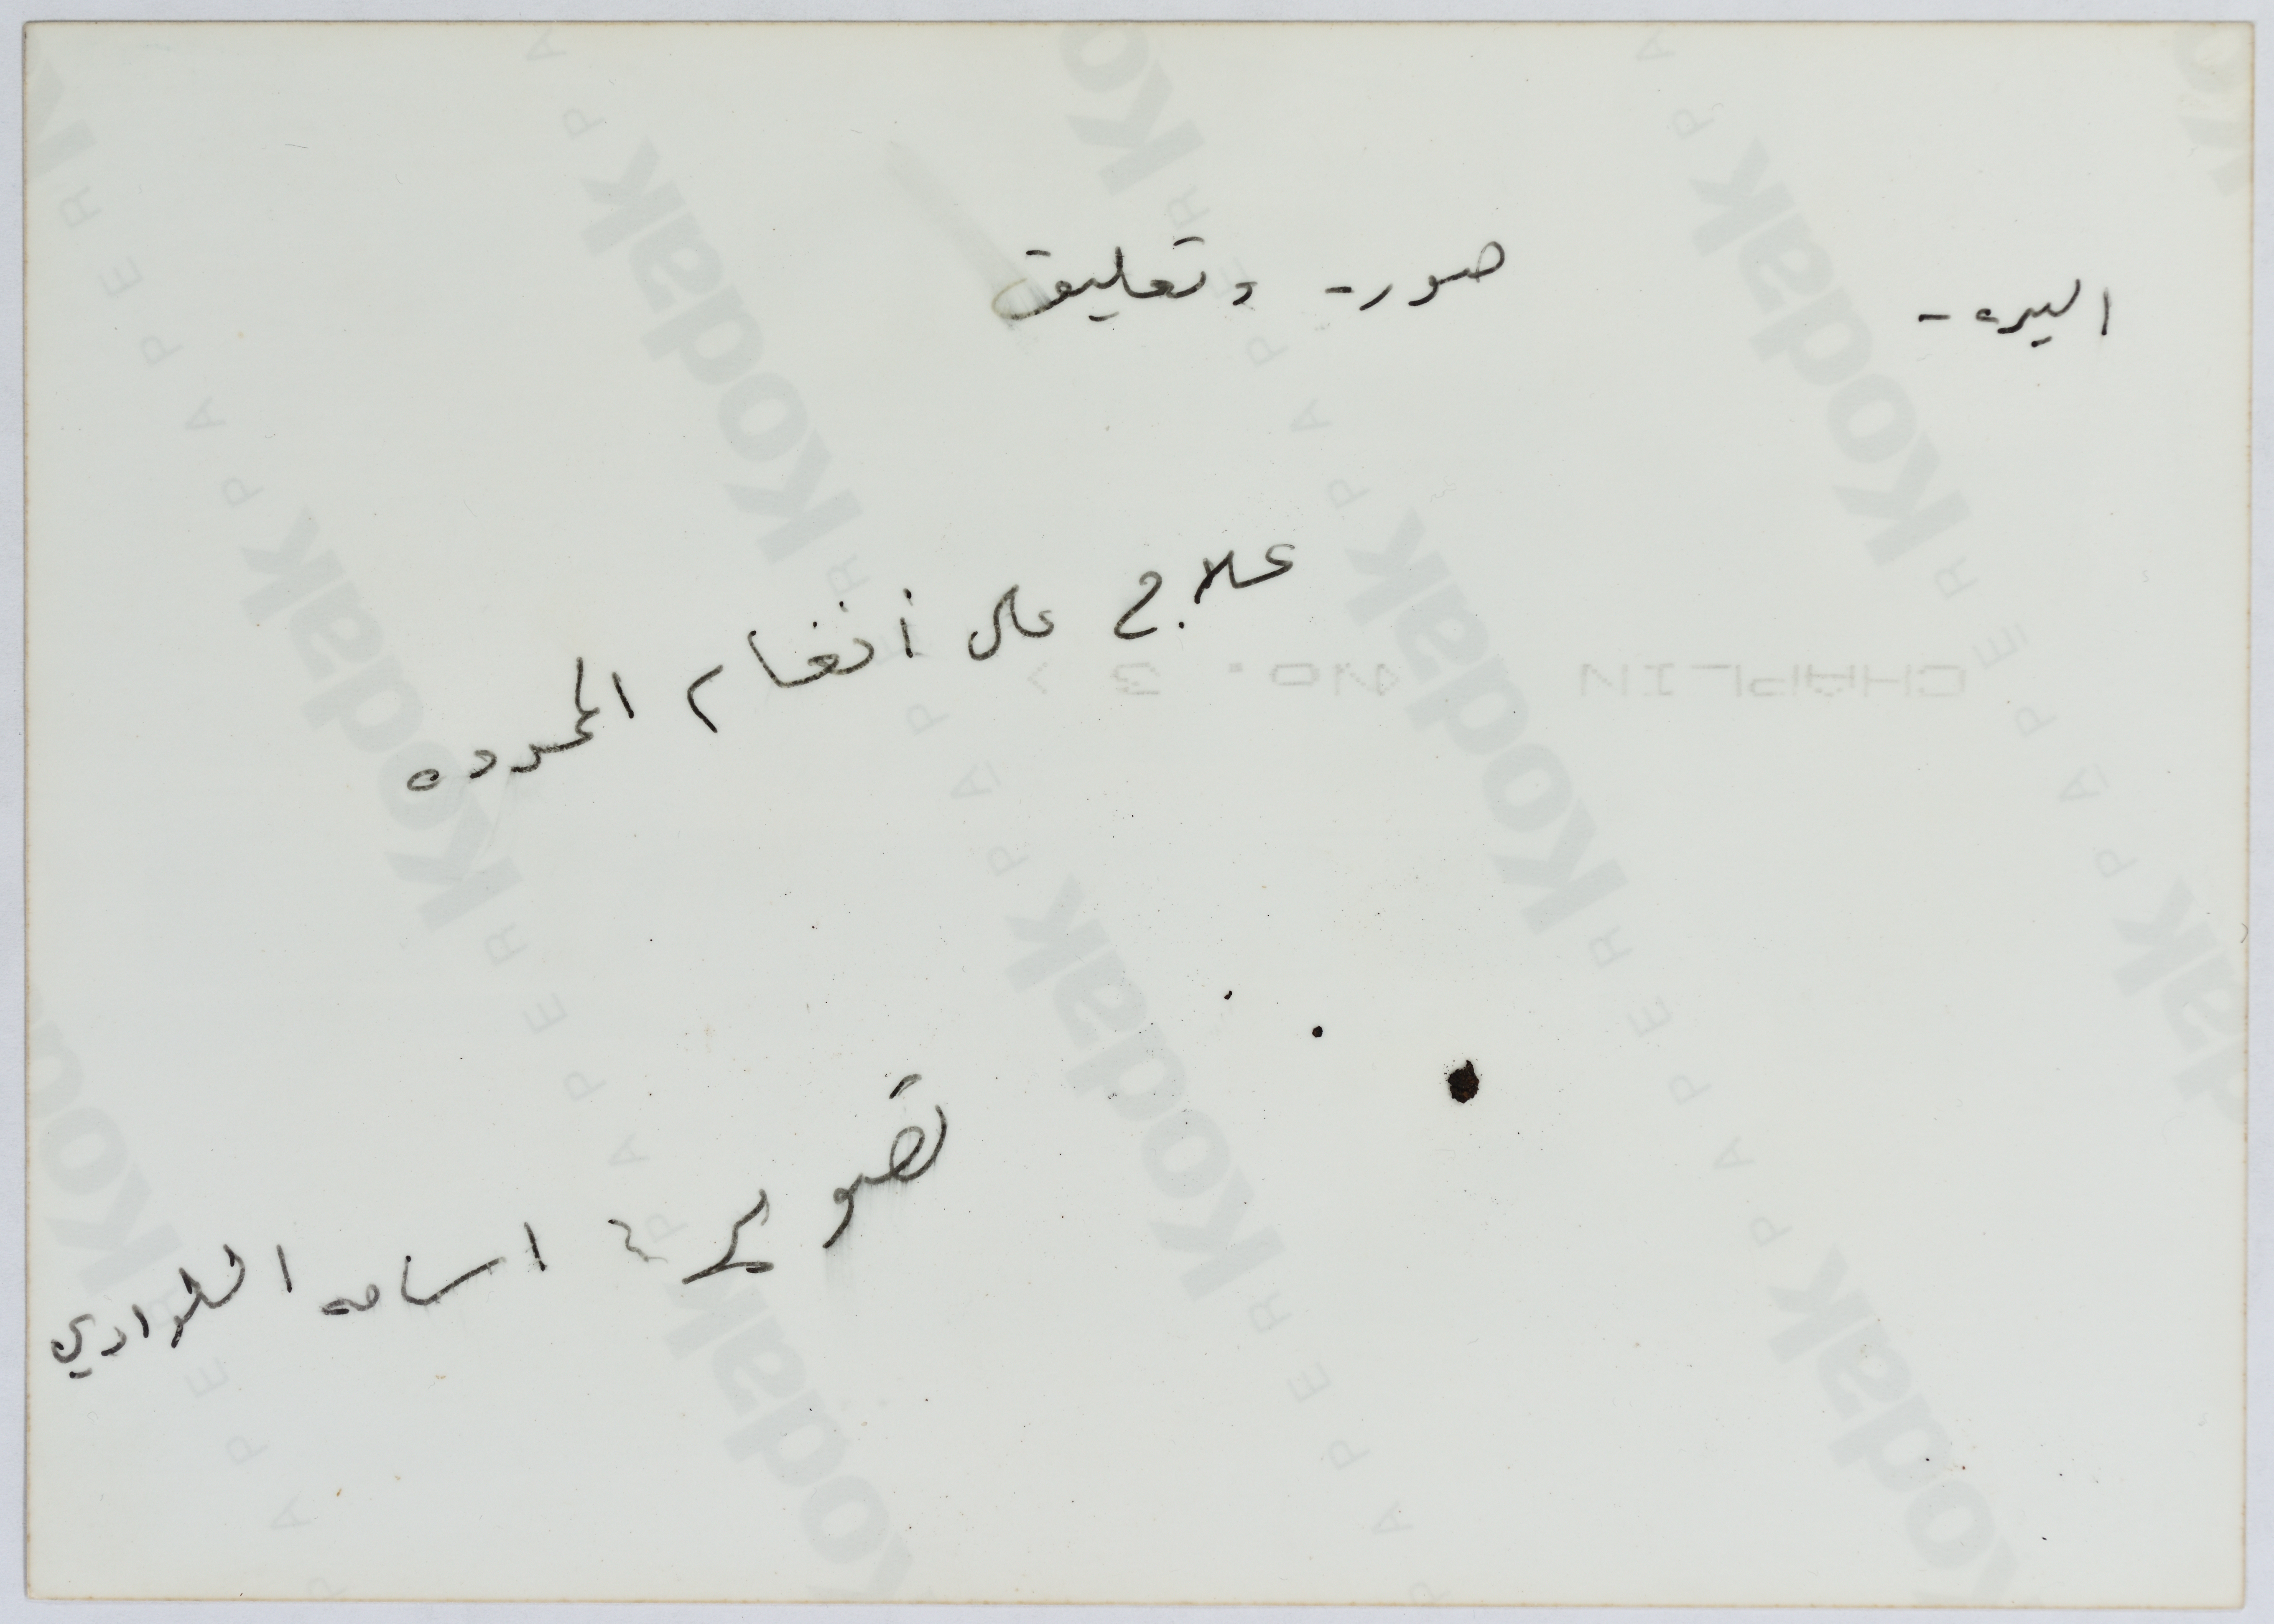 البيره - صور - وتعليق
علاج على أنغام المحدده
CHAPLIN <NO. 3>
تصوير : اسامه السلوادي
Kodak
PAPER